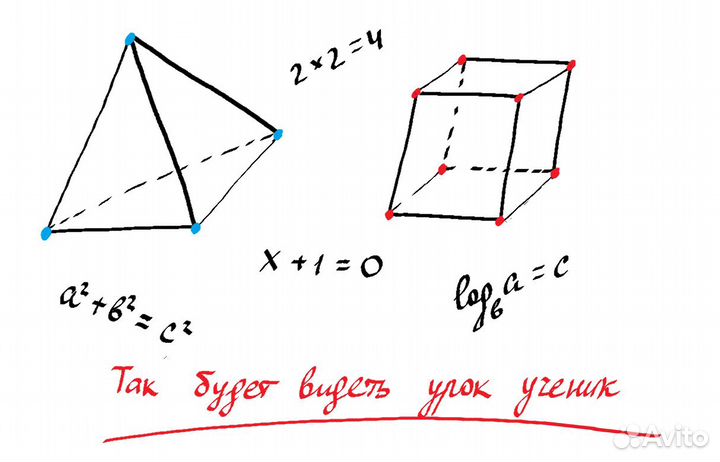 2×2=4
x+1=0
a²+в²=c²
log_в a=c
Так будет видеть урок ученик
Avito